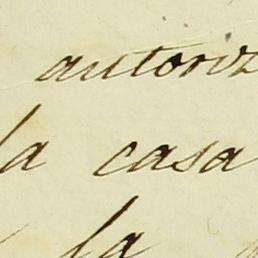 autoriz
la casa
la